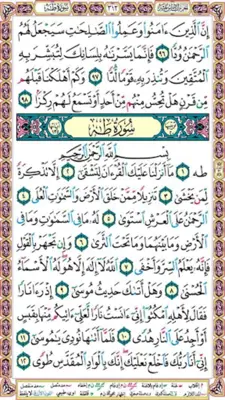 سُورَةُ طه ٣١٢
إِنَّ الَّذِينَ ءَامَنُوا وَعَمِلُوا الصَّالِحَاتِ سَيَجْعَلُ لَهُمُ
الرَّحْمَنُ وُدًّا ٩٦ فَإِنَّمَا يَسَّرْنَاهُ بِلِسَانِكَ لِتُبَشِّرَ بِهِ
الْمُتَّقِينَ وَتُنذِرَ بِهِ قَوْمًا لُّدًّا ٩٧ وَكَمْ أَهْلَكْنَا قَبْلَهُم
مِّن قَرْنٍ هَلْ تُحِسُّ مِنْهُم مِّنْ أَحَدٍ أَوْ تَسْمَعُ لَهُمْ رِكْزًا ٩٨
سُورَةُ طه
بِسْمِ اللَّهِ الرَّحْمَنِ الرَّحِيمِ
طه ١ مَا أَنزَلْنَا عَلَيْكَ الْقُرْءَانَ لِتَشْقَى ٢ إِلَّا تَذْكِرَةً
لِّمَن يَخْشَى ٣ تَنزِيلًا مِّمَّنْ خَلَقَ الْأَرْضَ وَالسَّمَاوَاتِ الْعُلَى ٤
الرَّحْمَنُ عَلَى الْعَرْشِ اسْتَوَى ٥ لَهُ مَا فِي السَّمَاوَاتِ وَمَا فِي
الْأَرْضِ وَمَا بَيْنَهُمَا وَمَا تَحْتَ الثَّرَى ٦ وَإِن تَجْهَرْ بِالْقَوْلِ
فَإِنَّهُ يَعْلَمُ السِّرَّ وَأَخْفَى ٧ اللَّهُ لَا إِلَهَ إِلَّا هُوَ لَهُ الْأَسْمَاءُ
الْحُسْنَى ٨ وَهَلْ أَتَاكَ حَدِيثُ مُوسَى ٩ إِذْ رَءَا نَارًا
فَقَالَ لِأَهْلِهِ امْكُثُوا إِنِّي ءَانَسْتُ نَارًا لَّعَلِّي ءَاتِيكُم مِّنْهَا بِقَبَسٍ
أَوْ أَجِدُ عَلَى النَّارِ هُدًى ١٠ فَلَمَّا أَتَاهَا نُودِيَ يَا مُوسَى ١١
إِنِّي أَنَا رَبُّكَ فَاخْلَعْ نَعْلَيْكَ إِنَّكَ بِالْوَادِ الْمُقَدَّسِ طُوًى ١٢